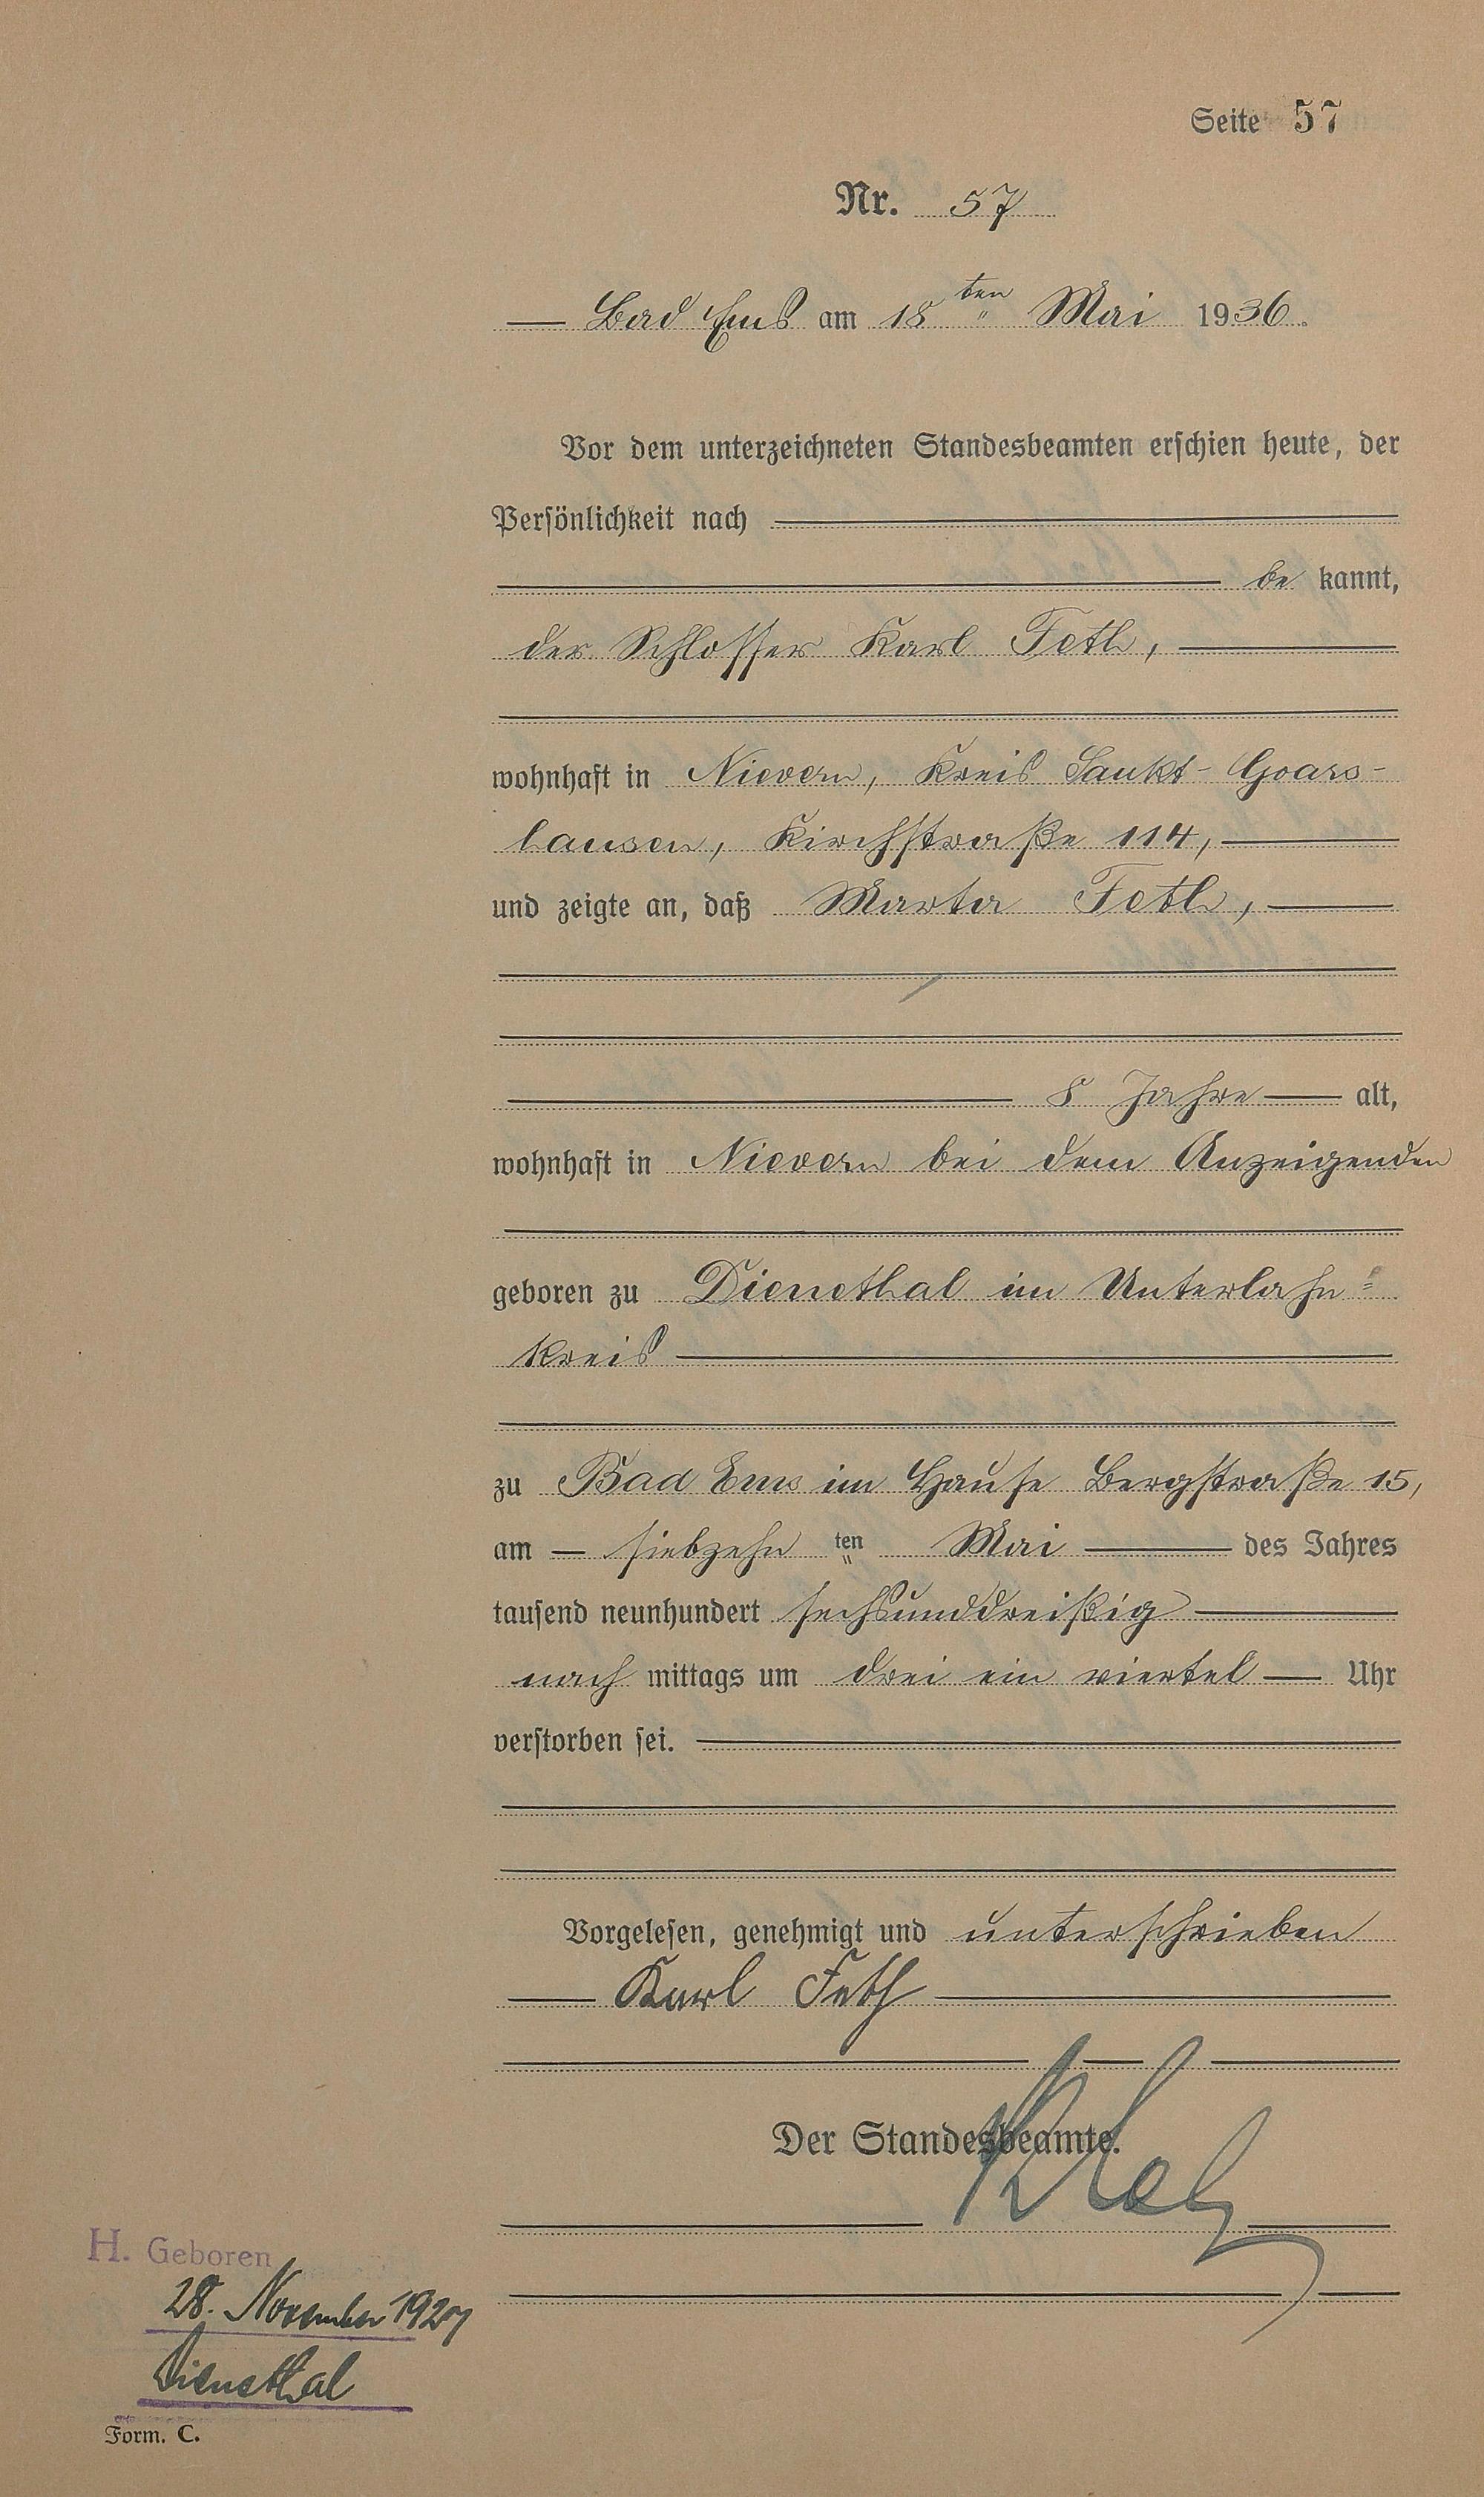 Seite 57
Nr. 57
Bad Ems am 18 ten Mai 1936.
Vor dem unterzeichneten Standesbeamten erschien heute, der
Persönlichkeit nach
be kannt,
der Schlosser Karl Feth,
wohnhaft in Nievern, Kreis Sankt-Goars-
hausen, Kirchstraße 114,
und zeigte an, daß Marta Feth,
8 Jahre alt,
wohnhaft in Nievern bei dem Anzeigenden
geboren zu Dienethal im Unterlahn=
kreis
zu Bad Ems im Hause Bergstraße 15,
am siebzehn ten Mai des Jahres
tausend neunhundert sechsunddreißig
nach mittags um drei ein viertel Uhr
verstorben sei.
Vorgelesen, genehmigt und unterschrieben
Karl Feth
Der Standesbeamte.
H. Geboren
28. November 1927
Dienethal
Form. C.